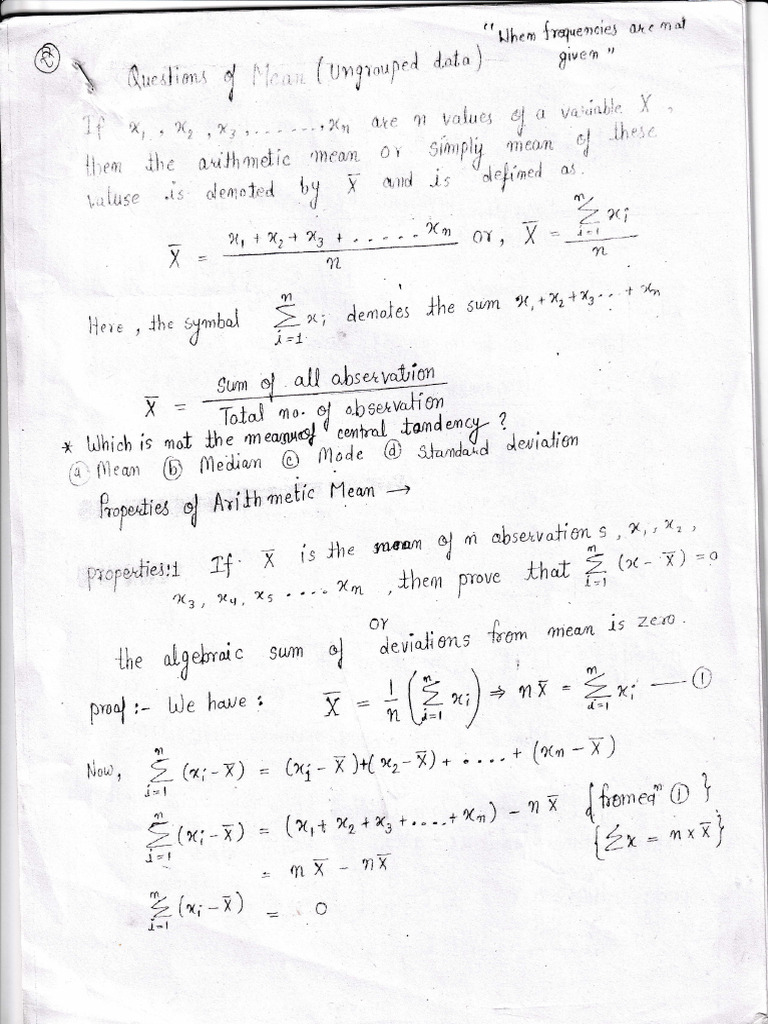 "When frequencies are not
given"
② Questions of Mean (Ungrouped data)
If x₁, x₂, x₃, ......., xₙ are n values of a variable X,
then the arithmetic mean or simply mean of these
valuse is denoted by X̄ and is defined as.
X̄ = (x₁ + x₂ + x₃ + ...... xₙ)/n or, X̄ = (∑ⁿᵢ₌₁ xᵢ)/n
Here, the symbol ∑ⁿᵢ₌₁ xᵢ denotes the sum x₁ + x₂ + x₃ ... + xₙ
X̄ = Sum of all observation / Total no. of observation
* Which is not the measure of central tandency ?
ⓐ Mean ⓑ Median ⓒ Mode ⓓ Standard deviation
Properties of Arithmetic Mean →
properties:1 If X̄ is the mean of n observations, x₁, x₂,
x₃, x₄, x₅ .... xₙ, then prove that ∑ⁿᵢ₌₁ (x - X̄) = 0
or
the algebraic sum of deviations from mean is zero.
proof :- We have : X̄ = 1/n (∑ⁿᵢ₌₁ xᵢ) ⇒ nX̄ = ∑ⁿᵢ₌₁ xᵢ — ①
Now, ∑ⁿᵢ₌₁ (xᵢ - X̄) = (x₁ - X̄) + (x₂ - X̄) + .... + (xₙ - X̄)
∑ⁿᵢ₌₁ (xᵢ - X̄) = (x₁ + x₂ + x₃ + .... + xₙ) - nX̄ {from eqⁿ ①}
{∑x = n × X̄}
= nX̄ - nX̄
∑ⁿᵢ₌₁ (xᵢ - X̄) = 0